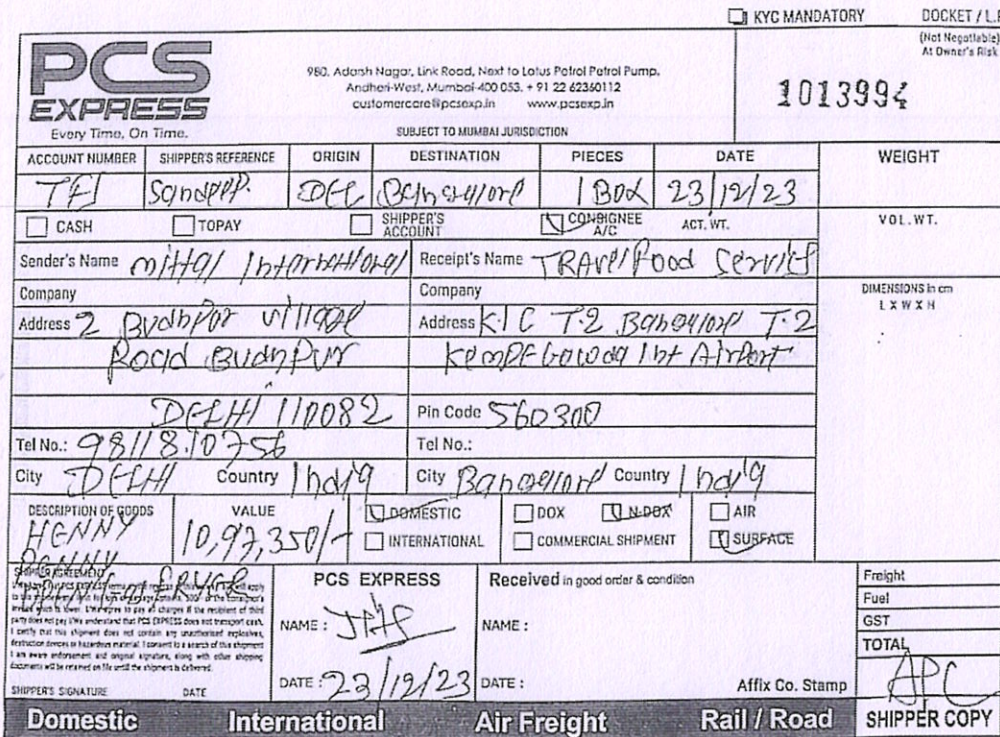 KYC MANDATORY DOCKET / L.
(Not Negotiable)
At Owner's Risk
PCS
EXPRESS
Every Time, On Time.
980, Adarsh Nagar, Link Road, Next to Lotus Petrol Petrol Pump,
Andheri-West, Mumbai-400 053. + 91 22 62360112
customercare@pcsexp.in www.pcsexp.in
SUBJECT TO MUMBAI JURISDICTION
1013994
ACCOUNT NUMBER SHIPPER'S REFERENCE ORIGIN DESTINATION PIECES DATE WEIGHT
Sandeep. DEL Bangalore 1 Box 23/12/23
CASH TOPAY SHIPPER'S ACCOUNT CONSIGNEE A/C ACT. WT. VOL. WT.
Sender's Name Mittal International Receipt's Name TRAVEL Food Service
Company Company DIMENSIONS in cm
L X W X H
Address 2 Budhpur village Address K.I.C T-2 Bangalore T-2
Road Budhpur KempE Gowda Int Airport
DELHI 110082 Pin Code 560300
Tel No.: 9811810756 Tel No.:
City DELHI Country India City Bangalore Country India
DESCRIPTION OF GOODS VALUE DOMESTIC DOX N-DOX AIR
HENNY 10,97,350/- INTERNATIONAL COMMERCIAL SHIPMENT SURFACE
PENNY
SHIPPER AGREEMENT
party does not pay I/We understand that PCS EXPRESS does not transport cash.
I certify that this shipment does not contain any unauthorised explosives,
destruction devices or hazardous material. I consent to a search of this shipment
I am aware endorsement and original signature, along with other shipping
documents will be retained on file until the shipment is delivered.
SHIPPER'S SIGNATURE DATE
PCS EXPRESS
NAME :
DATE : 23/12/23
Received in good order & condition
NAME :
DATE : Affix Co. Stamp
Freight
Fuel
GST
TOTAL
Domestic International Air Freight Rail / Road SHIPPER COPY